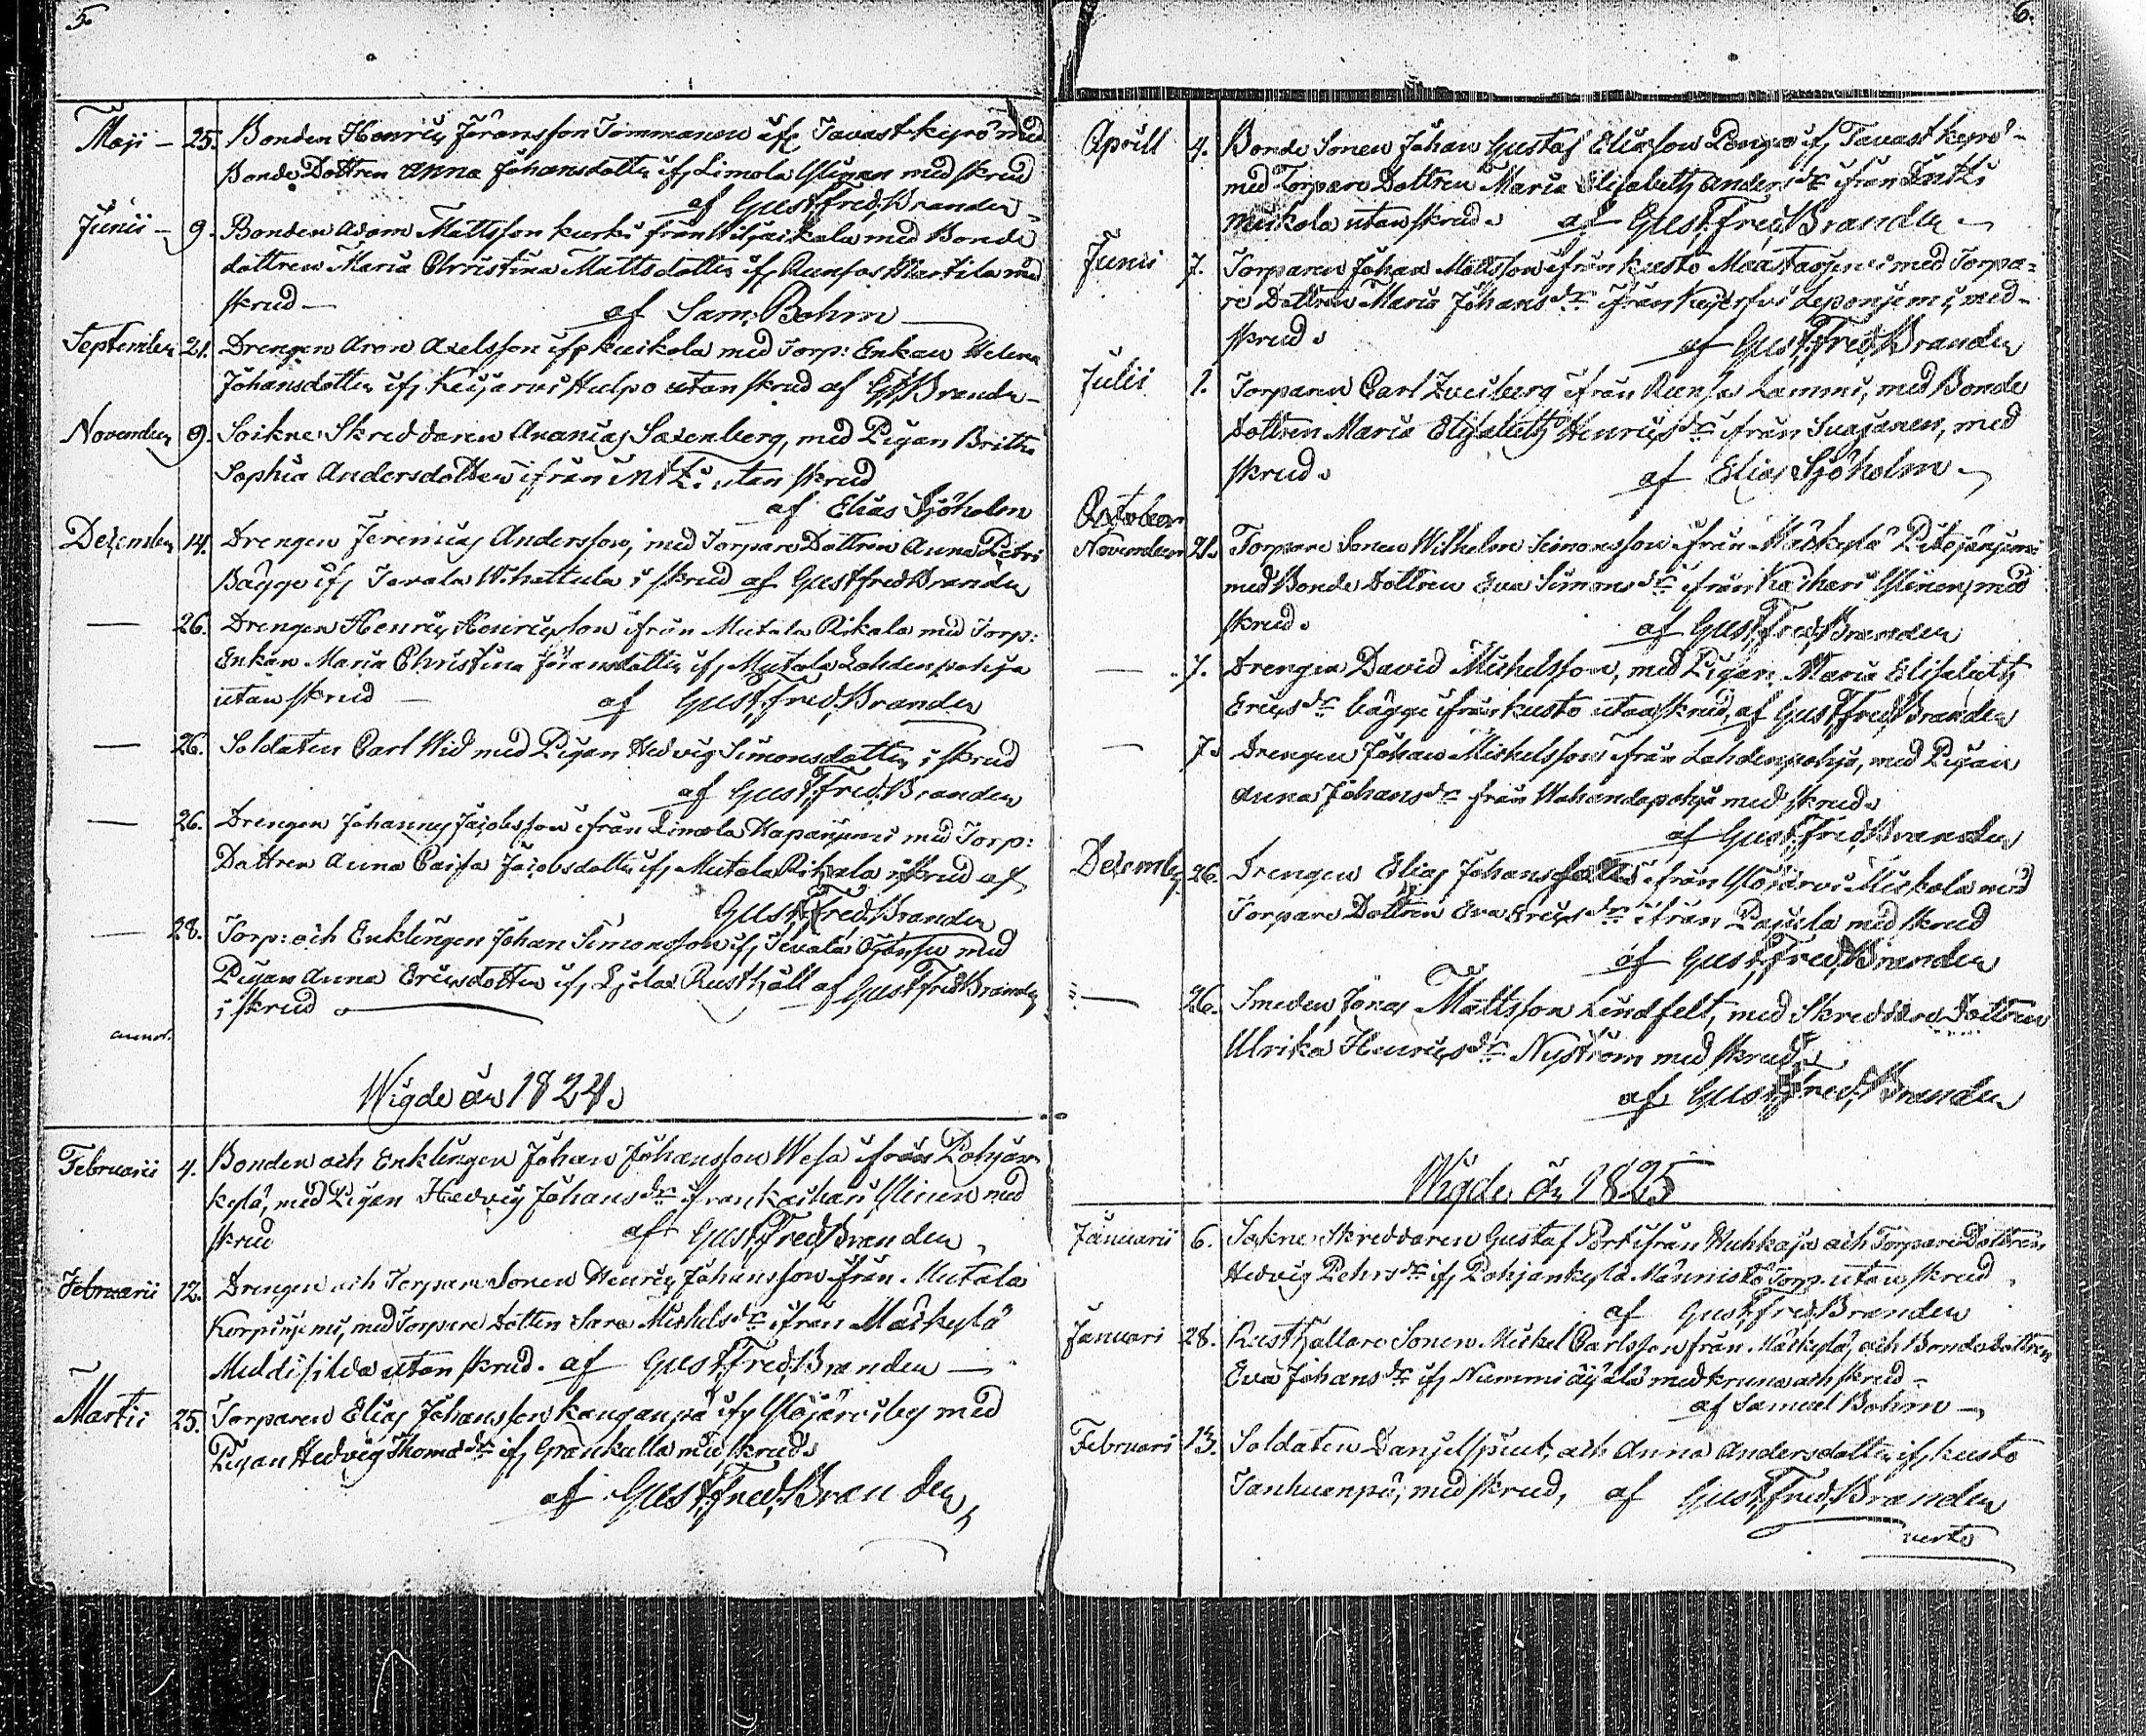 5.
Maji - 25. Bonden Henric Jöransson Tommanen if Tavastkyrö med
Bonde Dottren Anna Johansdotter if Limola Ylinen med skrud
af Gust. Fred. Brander
Junii - 9. Bonden Adam Mattsson Kurki från Wiljaikala med Bonde
dottren Maria Christina Mattsdotter if Runfas Martila med
skrud - af Sam. Bohm
September 21. Drengen Aron Axelsson if Kuikola med Torp: Enkan Helena
Johansdotter if Keijarvi Hulpo utan skrud af G F Brander
November 9. Sockne Skreddaren Ananias Saxenberg, med Pigan Britha
Sophia Andersdotter ifrån utan skrud
af Elias Sjöholm
December 14. Drengen Jeremias Andersson, med Torpare Dottren Anna Petri
Bägge if Tevala Wihattula i skrud af Gust Fred Brander
— 26. Drengen Henric Henricsson ifrån Mutala Rikala med Torp:
Enkan Maria Christina Jöransdotter if Mutala Lahdenpohja
utan skrud — af Gust. Fred. Brander
— 26. Soldaten Carl Wid med Pigan Hedvig Simonsdotter i skrud
af Gust. Fred. Brander
— 26. Drengen Johannes Jacobsson ifrån Limola Hapaniemi med Torp:
Dottren Anna Caisa Jacobsdotter if Mutala Rikala i skrud af
Gust. Fred. Brander
— 28. Torp: och Enklingen Johan Simonsson if Tevala Ojansu med
Pigan Anna Ericsdotter if Lielax Rusthåll af Gust Fred Brander
i skrud
annot.
Wigde år 1824.
Februarii 4. Bonden och Enklingen Johan Johansson Wesa ifrån Pohjan
kylä, med Pigan Hedvig Johansdr ifrån Kaihari Ylinen med
skrud af Gust. Fred. Brander
Februarii 12. Drengen och Torpare Sonen Henric Johansson från Mutala
Korpiniemi, med Torpare Dotten Sara Michelsdr ifrån Mäckylä
utan skrud. af Gust. Fred. Brander —
Martii 25. Torparen Elias Johansson Kauganpä if Ylöjärvi by med
Pigan Hedvig Thomasdr if Grankulla med skrud.
af Gust. Fred. Brander
6.
Aprill 4. Bonde Sonen Johan Gustaf Eliasson Pengo if Tavastkyrö -
med Torpare Dottren Maria Elisabeth Andersdr ifrån Antti
Mickola utan skrud. af Gust. Fred. Brander -
Junii 7. Torparen Johan Mattsson ifrån Kusto Maatianjemi med Torpa=
re Dottren Maria Johansdr ifrån Keijerfvi Leponjemi, med -
skrud. af Gust. Fred. Brander
Julii 1. Torparen Carl Zweiberg ifrån Runfas Lammi, med Bonde
Dottren Maria Elisabeth Henricsdr ifrån Suojanen, med
skrud. af Elias Sjöholm -
October
November 21. Torpare Sonen Wilhelm Simonsson ifrån Mäckylä Pitkäniemi
med Bonde Dottren Eva Simonsdr ifrån Kaihari Ylinen, med
skrud. af Gust. Fred. Brander
— 7. Drengen David Michelsson, med Pigan Maria Elisabeth
Ericsdr bägge ifrån Kusto utan skrud, af Gust. Fred. Brander
— 7. Drengen Johan Michelsson ifrån Lahdenpohja, med Pigan
Anna Johansdr från Wahandapohja med skrud.
af Gust. Fred. Brander
December 26. Drengen Elias Johansson ifrån Ylöjärvi Mickola med
Torpare Dottren Eva Ericsdr ifrån Pajula med skrud
af Gust. Fred. Brander
— 26. Smeden Jonas Mattsson Lindfelt, med Skreddare Dottren
Ulrika Henricsdr Nyström med skrud.
af Gust. Fred. Brander
Wigde år 1825
Januarii 6. Sokne Skreddaren Gustaf Port ifrån Huhkaja och Torpare Dottren
Hedvig Pehrsdr if Pohjankylä Männistö Torp utan skrud
af Gust. Fred. Brander
Januari 28. Rusthållare Sonen Mickel Carlsson från Mäckylä, och Bonde dottren
Eva Johansdr if Nummi Äijälä med kruna och skrud -
af Samuel Bohm -
Februari 13. Soldaten Danjel Spiut, och Anna Andersdotter if Kusto
Tanhuanpä, med skrud, af Gust. Fred. Brander
verte